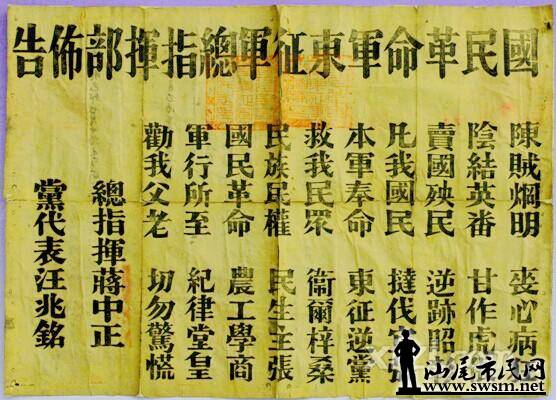 國民革命軍東征軍總指揮部佈告
陳賊烱明 喪心病
陰結英番 甘作虎
賣國殃民 逆跡昭
凡我國民 撻伐 張
本軍奉命 東征逆黨
救我民眾 衛爾梓桑
民族民權 民生主張
國民革命 農工學商
軍行所至 紀律堂皇
勸我父老 切勿驚慌
總指揮蔣中正
黨代表汪兆銘
汕尾市民网
www.swsm.net